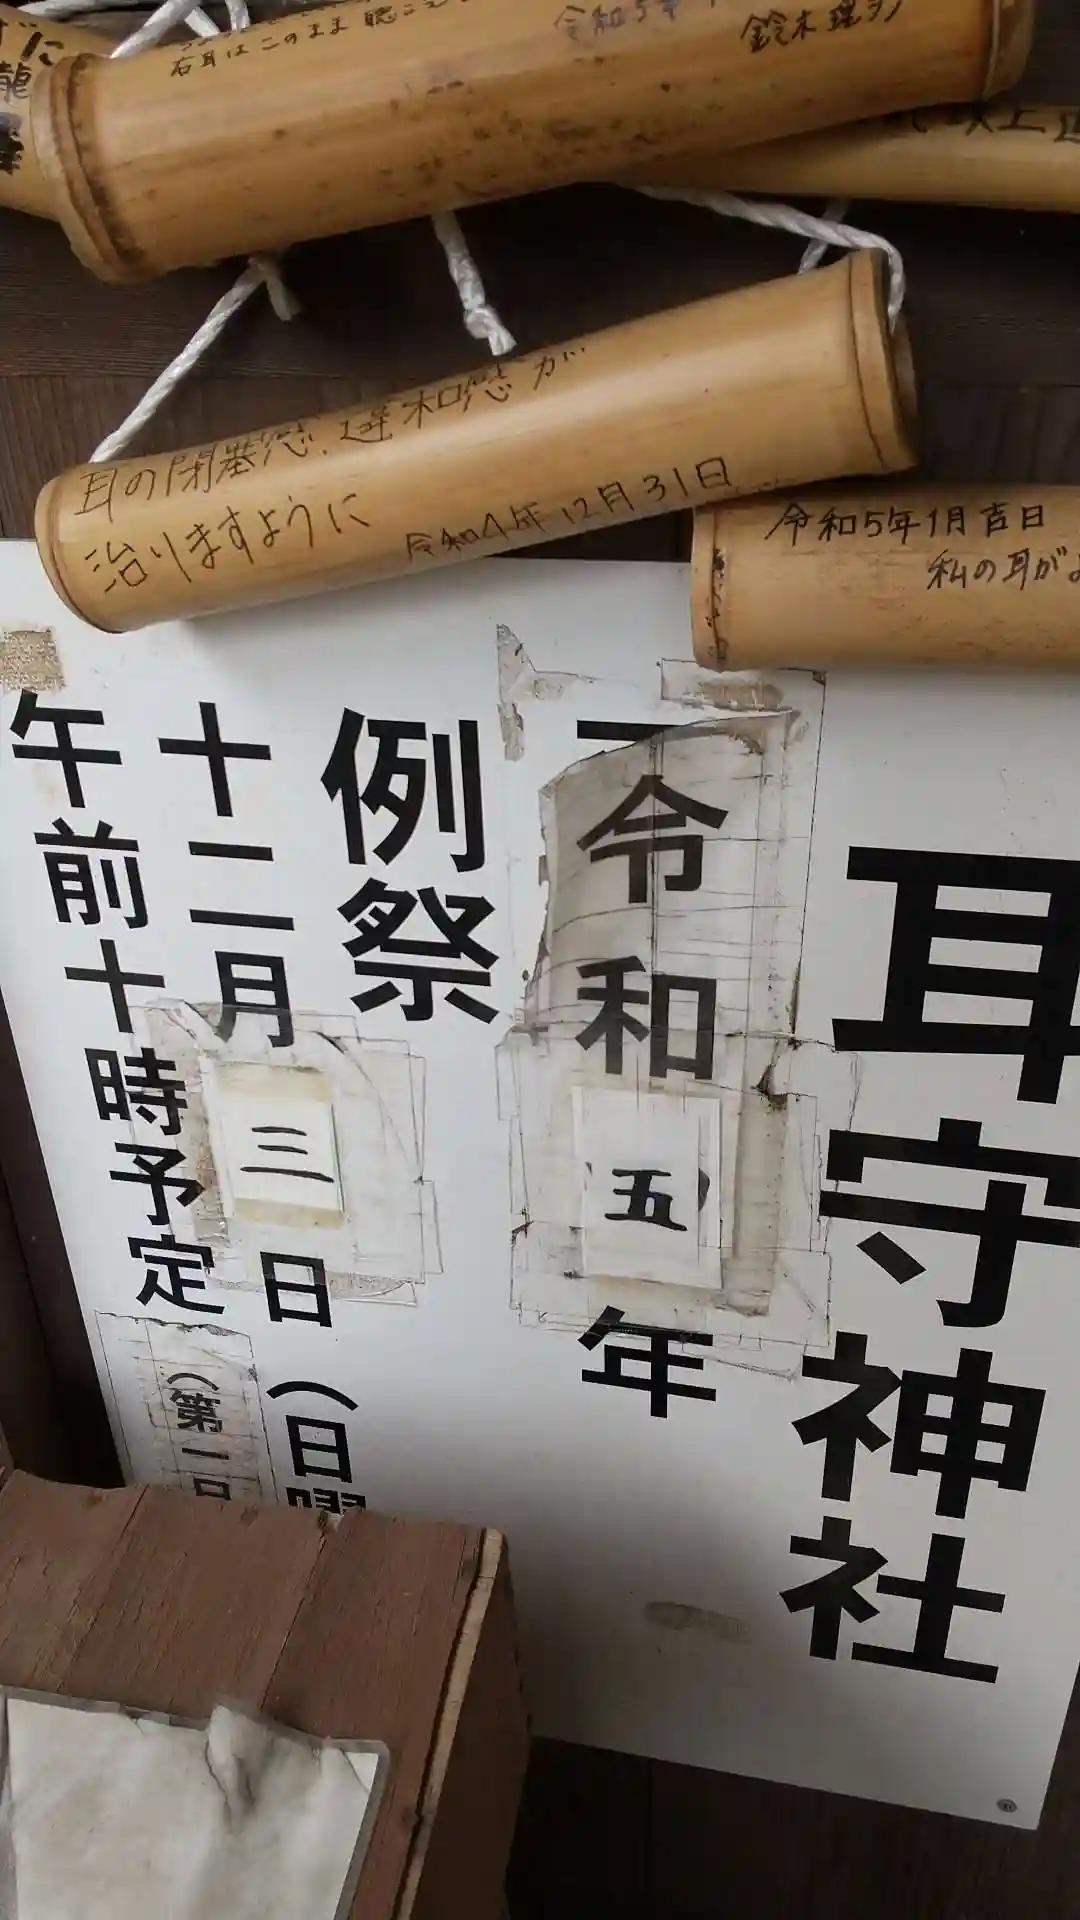 右耳はこのまま聴こえ
令和5年
鈴木
耳の閉塞感、違和感が
治りますように
令和4年12月31日
令和5年1月吉日
私の耳がよ
耳守神社
令和五年
例祭
十二月三日(日曜
午前十時予定
(第一日